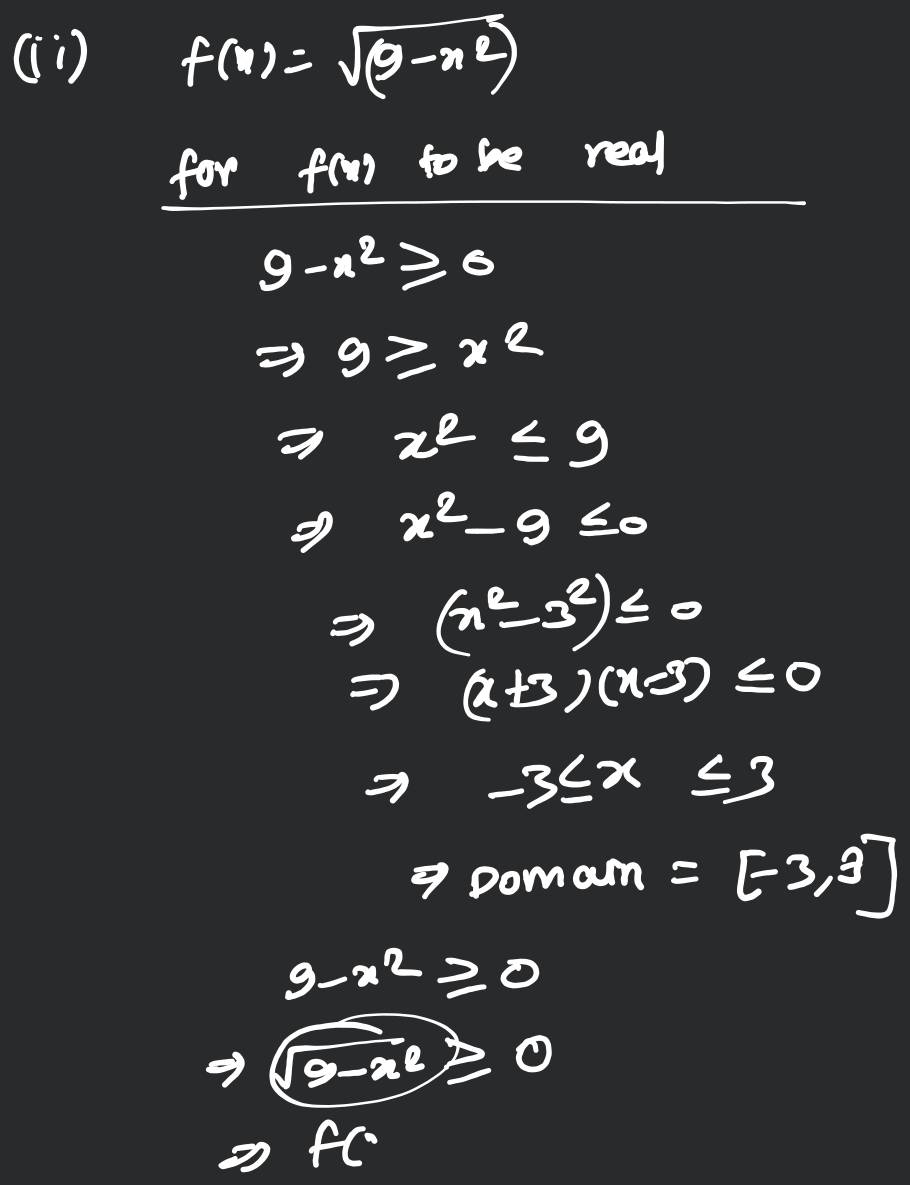 (ii) f(x) = √(9-x²)
for f(x) to be real
9-x² ≥ 0
⇒ 9 ≥ x²
⇒ x² ≤ 9
⇒ x²-9 ≤ 0
⇒ (x²-3²) ≤ 0
⇒ (x+3)(x-3) ≤ 0
⇒ -3 ≤ x ≤ 3
⇒ Domain = [-3,3]
9-x² ≥ 0
⇒ √9-x² ≥ 0
⇒ f(